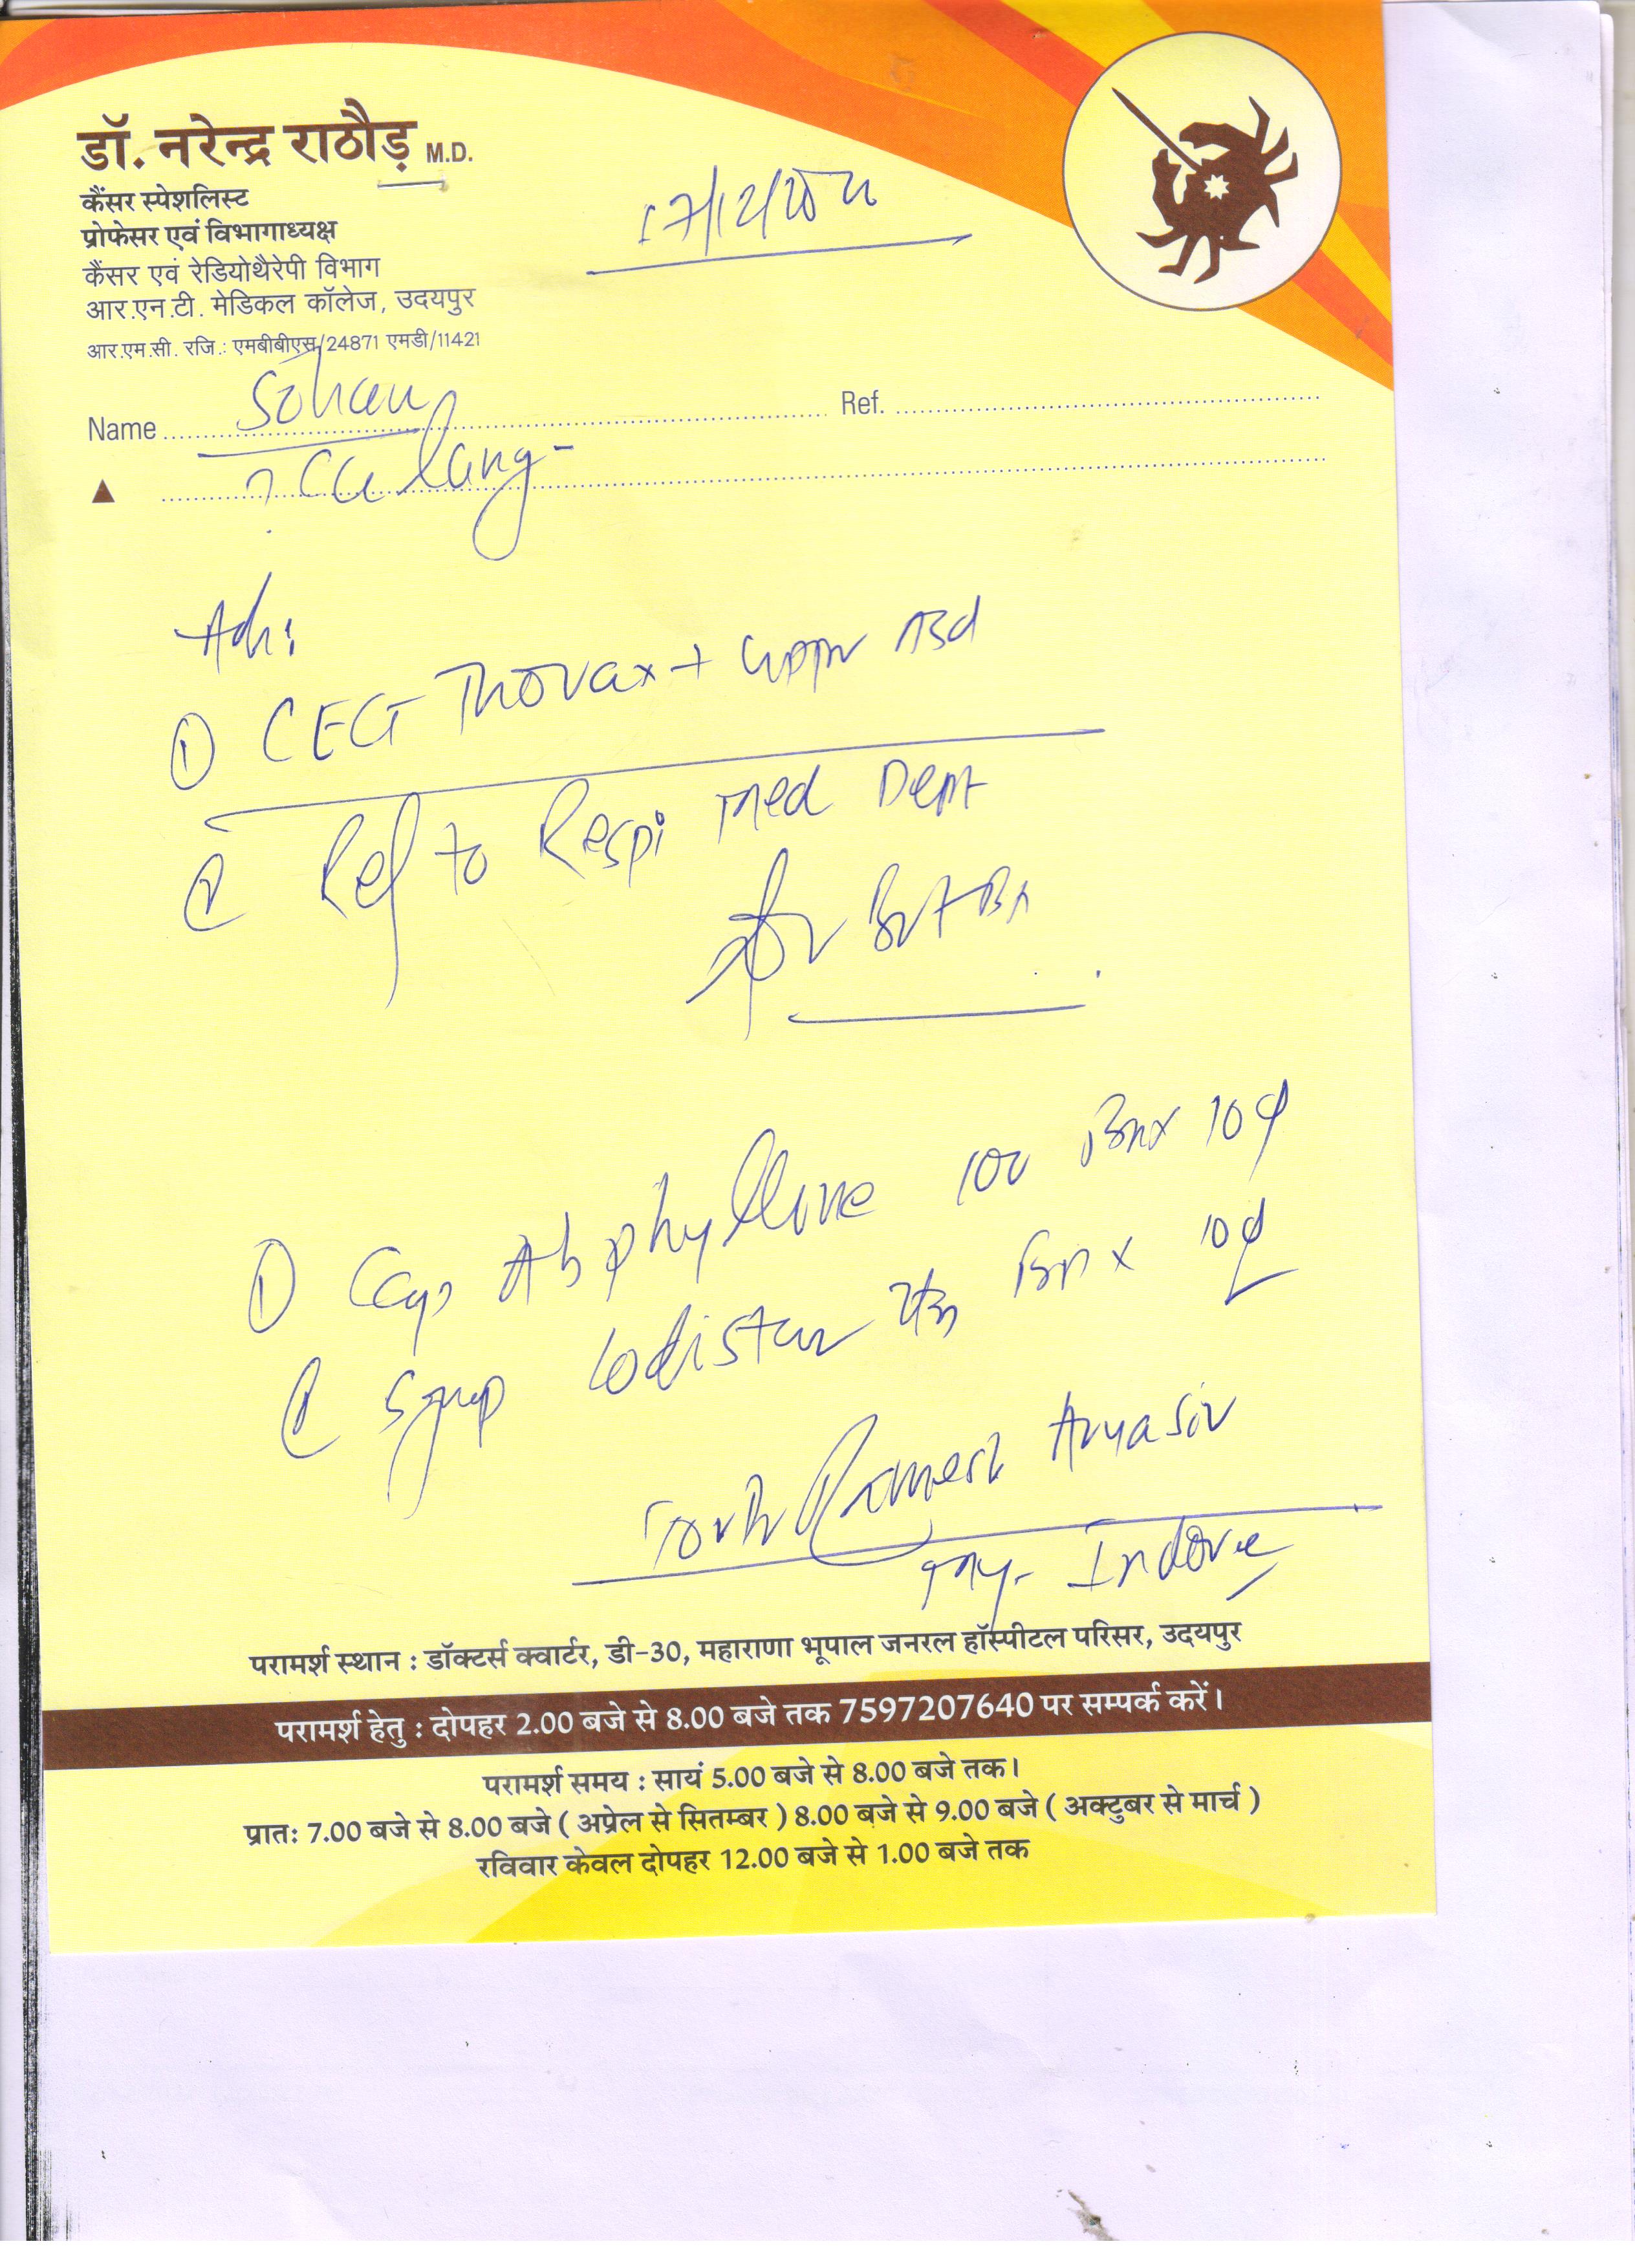 डॉ. नरेन्द्र राठौड़ M.D.
कैंसर स्पेशलिस्ट
प्रोफेसर एवं विभागाध्यक्ष
कैंसर एवं रेडियोथैरेपी विभाग
आर.एन.टी. मेडिकल कॉलेज, उदयपुर
आर.एम.सी. रजि.: एमबीबीएस/24871 एमडी/11421
Name Sohan Ref.
? Ca lung
Adv:
① CECT Thorax + Upper Abd
② Ref to Respi Med Dept
for
① Cap Abphylline 100 x 10 d
② Syrup x 10 d
Ramesh Arya Sir
My- Indore
परामर्श स्थान : डॉक्टर्स क्वार्टर, डी-30, महाराणा भूपाल जनरल हॉस्पीटल परिसर, उदयपुर
परामर्श हेतु : दोपहर 2.00 बजे से 8.00 बजे तक 7597207640 पर सम्पर्क करें।
परामर्श समय : सायं 5.00 बजे से 8.00 बजे तक।
प्रातः 7.00 बजे से 8.00 बजे ( अप्रेल से सितम्बर ) 8.00 बजे से 9.00 बजे ( अक्टुबर से मार्च )
रविवार केवल दोपहर 12.00 बजे से 1.00 बजे तक